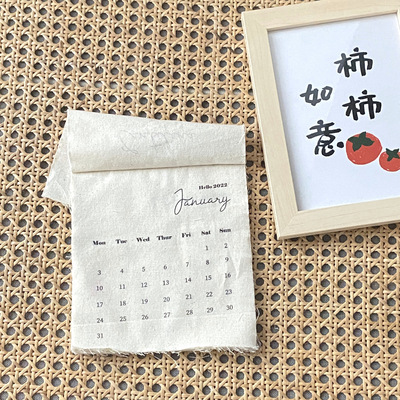 Hello 2022
January
Mon Tue Wed Thu Fri Sat Sun
1 2
3 4 5 6 7 8 9
10 11 12 13 14 15 16
17 18 19 20 21 22 23
24 25 26 27 28 29 30
31
柿柿
如意